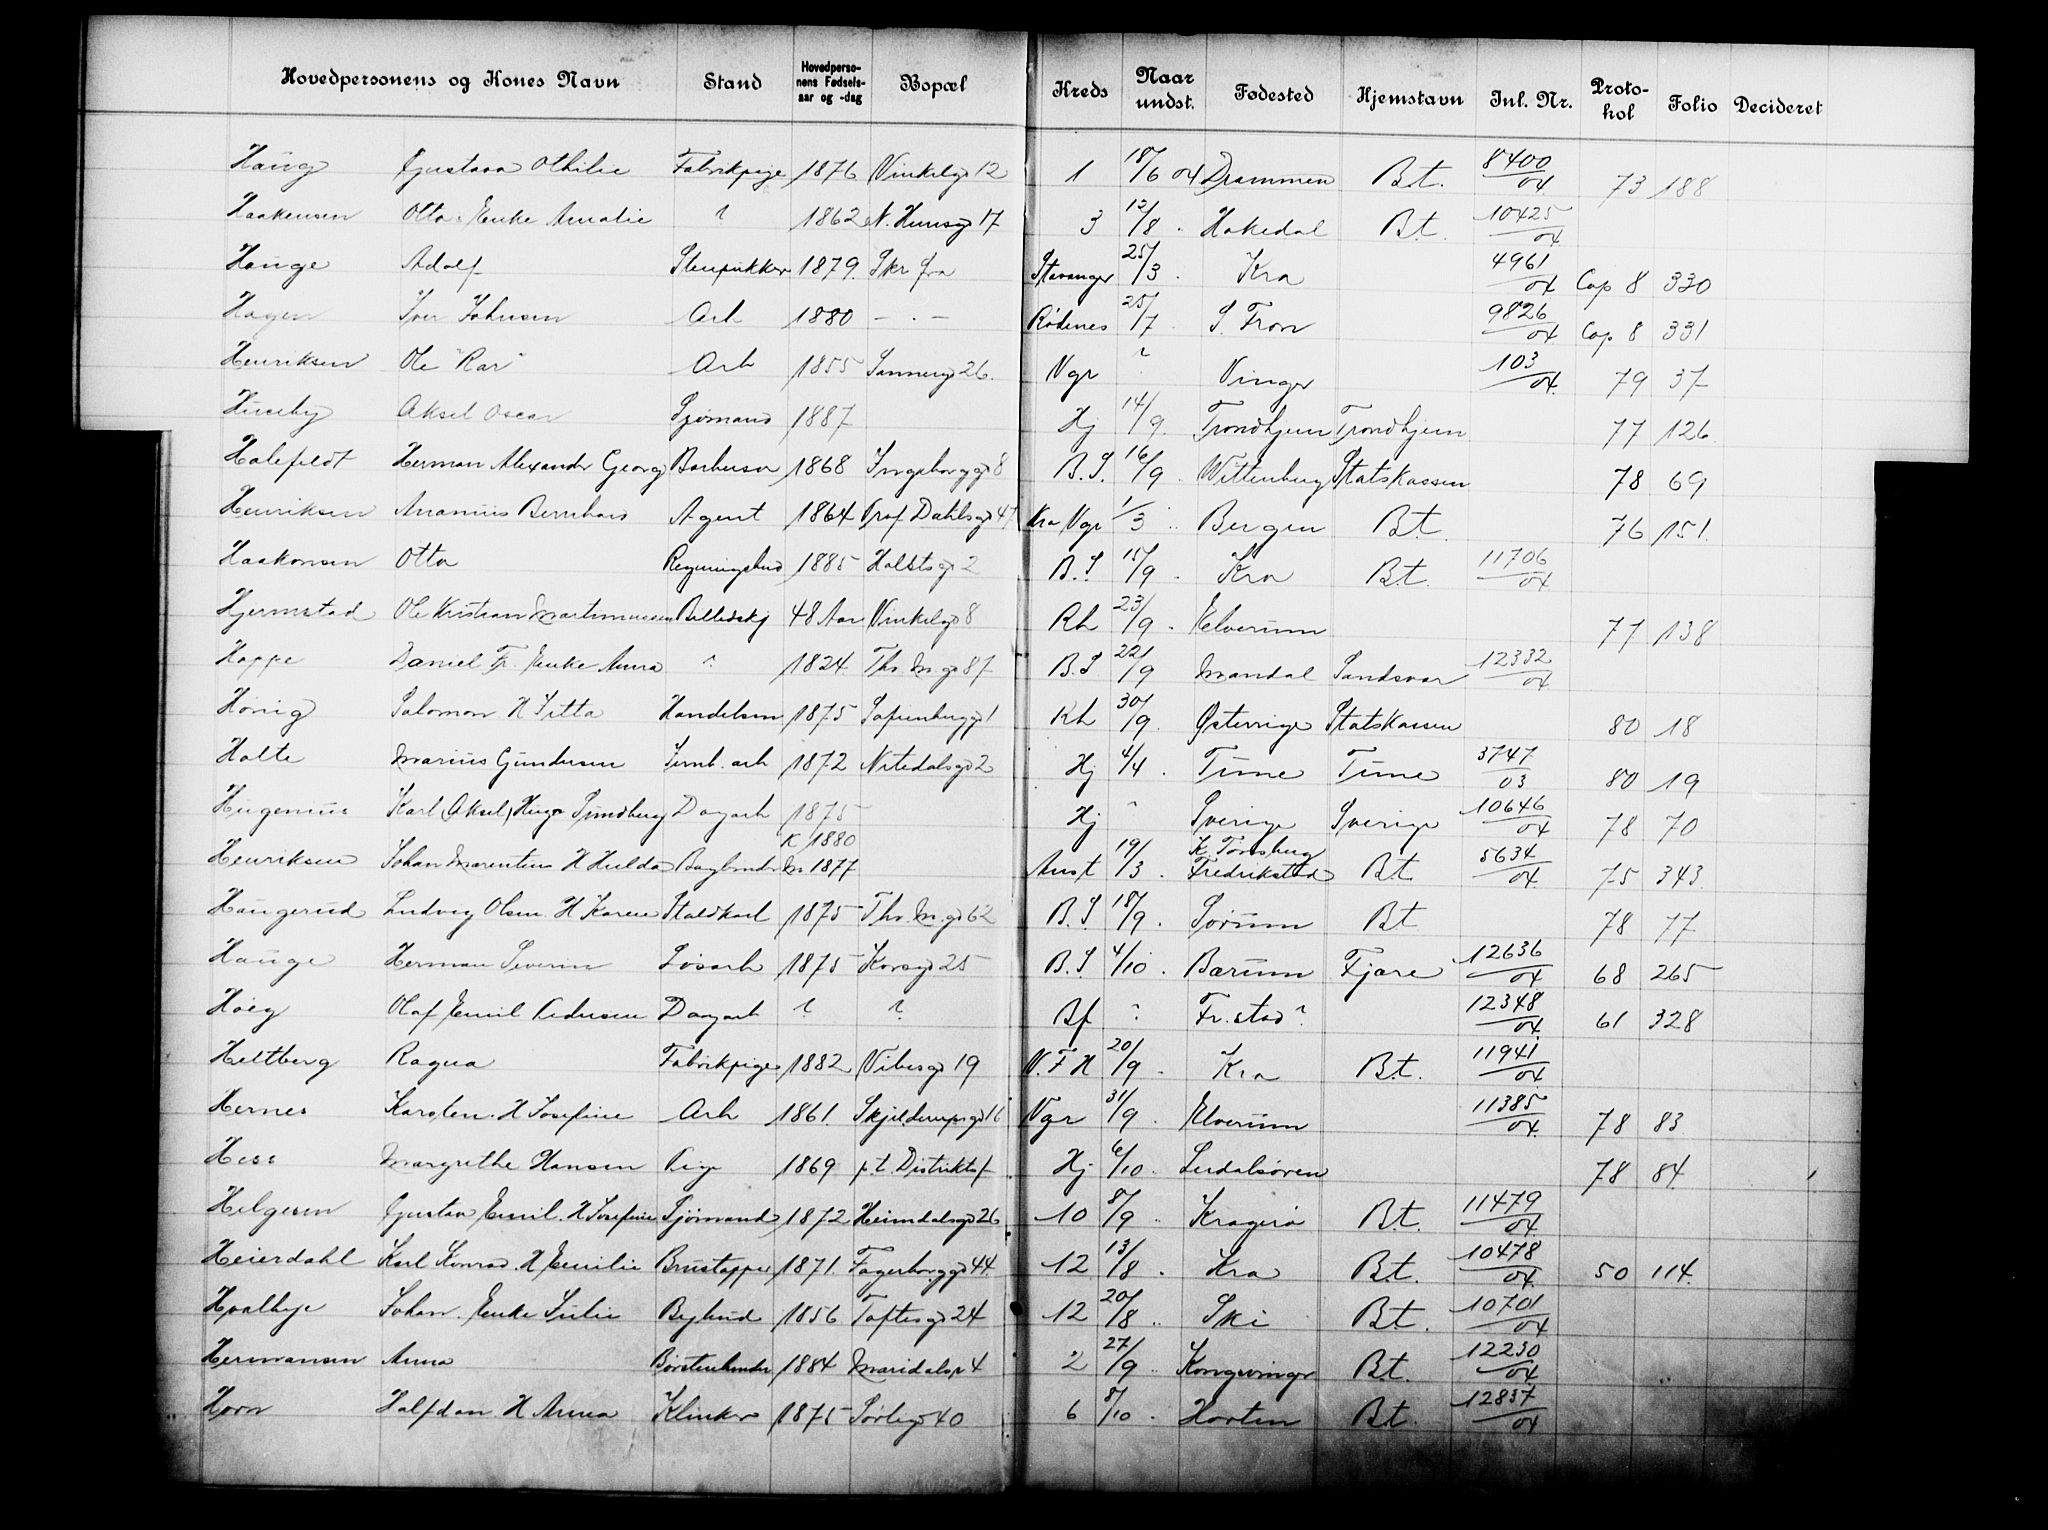 Hovedpersonens og Kones Navn Stand Hovedperso-nens Fødsels-aar og -dag Bopæl Kreds Naar undst. Fødested Hjemstavn Inl. Nr. Proto-kol Folio Decideret
Haug Gustava Othilie Fabrikpige 1876 Vinkelgd 12 1 18/6 04 Drammen Bt. 8400/04 73 188
Haakensen Otto. Enke Amalie ? 1862 N. Hunsgd 17 3 12/8 . Hakedal Bt. 10425/04
Hauge Adolf Stenpukker 1879 Skr fra Stavanger 25/3 . Kra 4961/04 Cop 8 330
Hagen Iver Johnsen Arb 1880 — . — Rødenes 25/7 S. Fron 9826/04 Cop 8 331
Henriksen Ole "Rar" Arb 1855 Sannergd 26. Vgr ? Vinger 103/04 79 37
Huseby Aksel Oscar Sjømand 1887 Hj 14/9. Trondhjem Trondhjem 77 126
Halefeldt Herman Alexander Georg Barbersv 1868 Ingeborggd 8 B.S. 16/9 . Wittenberg Statskassen 78 69
Henriksen Ananius Bernhard Agent 1864 Prof Dahlsgd 47 Kra Vgr 1/3 .. Bergen Bt. 76 151.
Haakonsen Otto Regningsbud 1885 Holstsgd 2 B.S 15/9 . Kra Bt. 11706/04
Hjermstad Ole Kristian Martinussen Billedskj 48 Aar Vinkelgd 8 Rh 23/9 . Elverum 77 138
Hoppe Daniel Fr. Enke Anna ? 1824 Th. M.gd 87 B.S 22/9 Mandal Sandsvær 12332/04
Hönig Salomon H Titta Handelsm 1875 Sofienbergg 1 Rh 30/9. Østerrige Statskassen 80 18
Holte Marius Gundersen Jernb. arb 1872 Nitedalsgd 2 Hj 4/4 . Time Time 3747/03 80 19
Hugenius Karl (Aksel) Hugo Sundberg Dagarb 1875 Hj ? Sverige Sverige 10646/04 78 70
Henriksen Johan Marentius H Hulda Bogbinder K 1880 M 1877 Anst 19/3 . K. Tønsberg Fredrikstad Bt 5634/04 75 343
Haugerud Ludvig Olsen. H Karen Staldkarl 1875 Thv. M.gd 62 B.S. 18/9 . Sørum Bt 78 77
Hauge Herman Severin Løsarb 1875 Korsgd 25 B.S 4/10 . Bærum Fjære 12636/04 68 265
Höeg Olaf Emil Pedersen Dagarb ? ? Bf ? Fr.stad ? 12348/04 61 328
Heltberg Ragna Fabrikpige 1882 Vibesgd 19 V.F.H 20/9 . Kra Bt. 11941/04
Hernes Karsten. H Josefine Arb 1861. Skjelderupsgd 16 Vgr 31/9 . Elverum 11385/04 78 83
Hess Margrethe Hansen Pige 1869 p.t. Distriktsf Hj 6/10 . Lerdalsøren 78 84
Helgesen Gustav Emil. H Josefine Sjømand 1872 Heimdalsgd 26 10 8/9 .. Kragerø Bt. 11479/04
Heierdahl Karl Konrad. H Emilie Brustapper 1871. Fagerborggd 44. 12 13/8 . Kra Bt. 10478/04 50 114.
Hvalbye Johan. Enke Julie Bybud 1856 Toftesgd 24 12 20/8 .. Ski Bt. 10701/04
Hermansen Anna Børstenbinder 1884 Maridalsv 4 2 27/9 .. Kongsvinger Bt. 12230/04
Horn Halfdan H Anna Klinker 1875 Sørligd 40 6 8/10 . Horten Bt. 12837/04